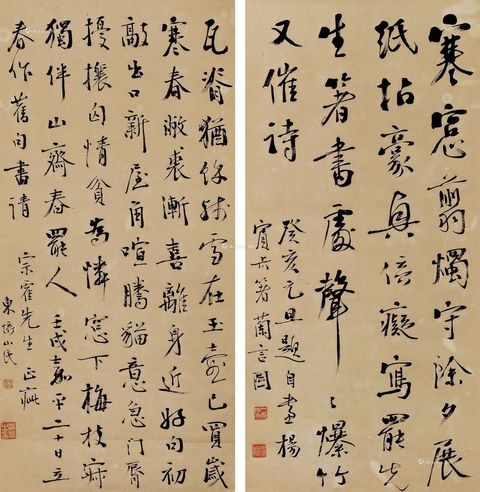 寒窓翦燭守除夕展
紙拈豪真倍癡寫罷先
生箸書處聲〻爆竹
又催詩
癸亥元旦題自畫楊
箸蘭言圖
瓦脊猶餘殘雪在玉壺已買歲
寒春敝裘漸喜離身近好句初
敲出口新屋角喧騰貓意急門
擾攘囚情貧為憐窓下梅枝瘦
獨伴山齋春罷人壬戌嘉平二十日立
春作舊句書請
宗霍先生正疵
東陽山民